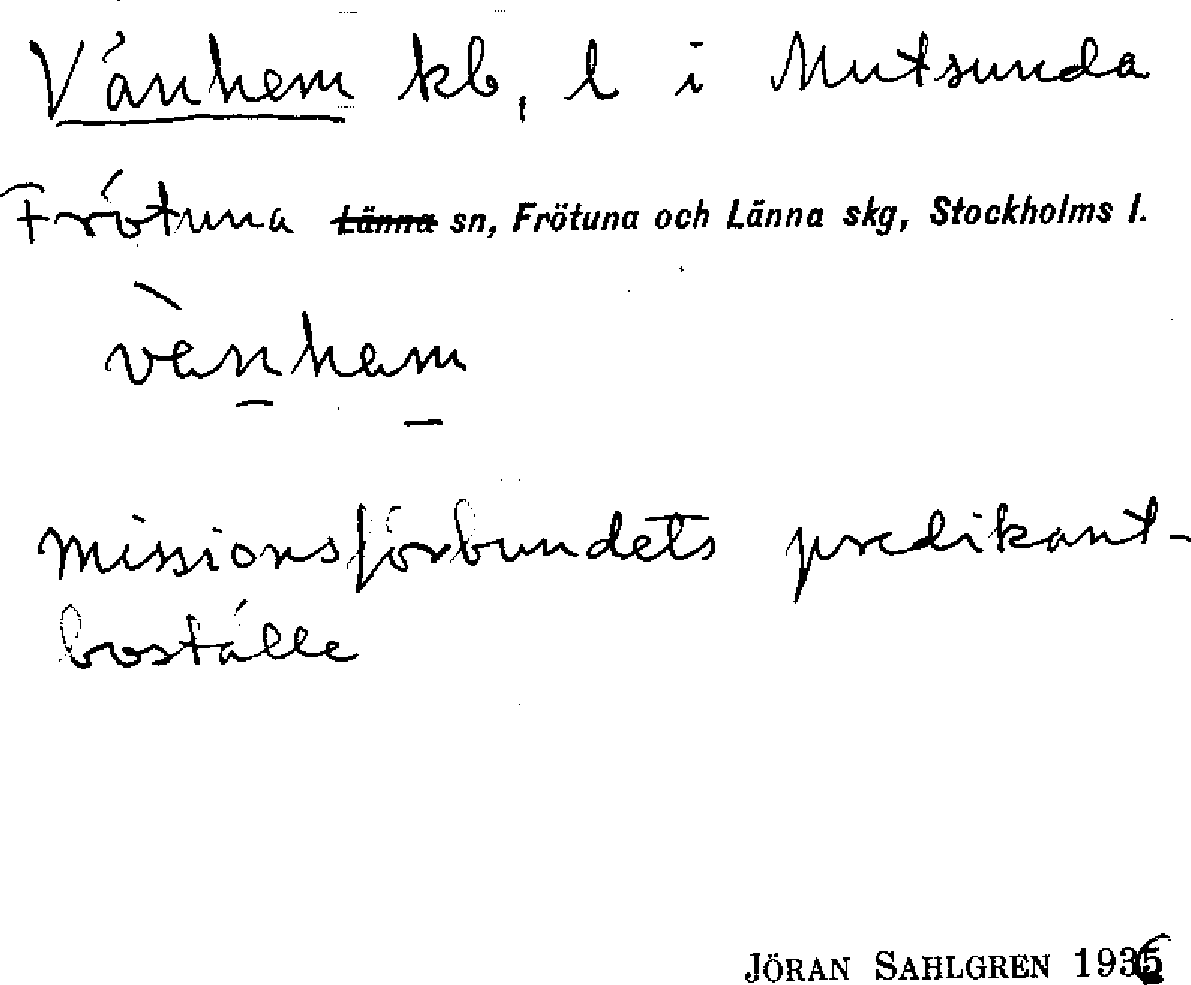 Vänhem kb, l i Mutsunda
Frötuna Länna sn, Frötuna och Länna skg, Stockholms l.
vànham
missionsförbundets predikant-
boställe
JÖRAN SAHLGREN 1936